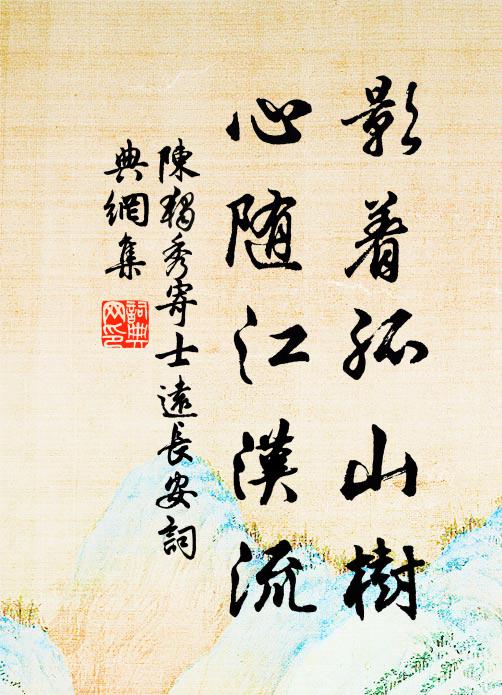 影着孤山樹
心随江漢流
陳獨秀寄士遠長安詞
典網集
詞典
网印